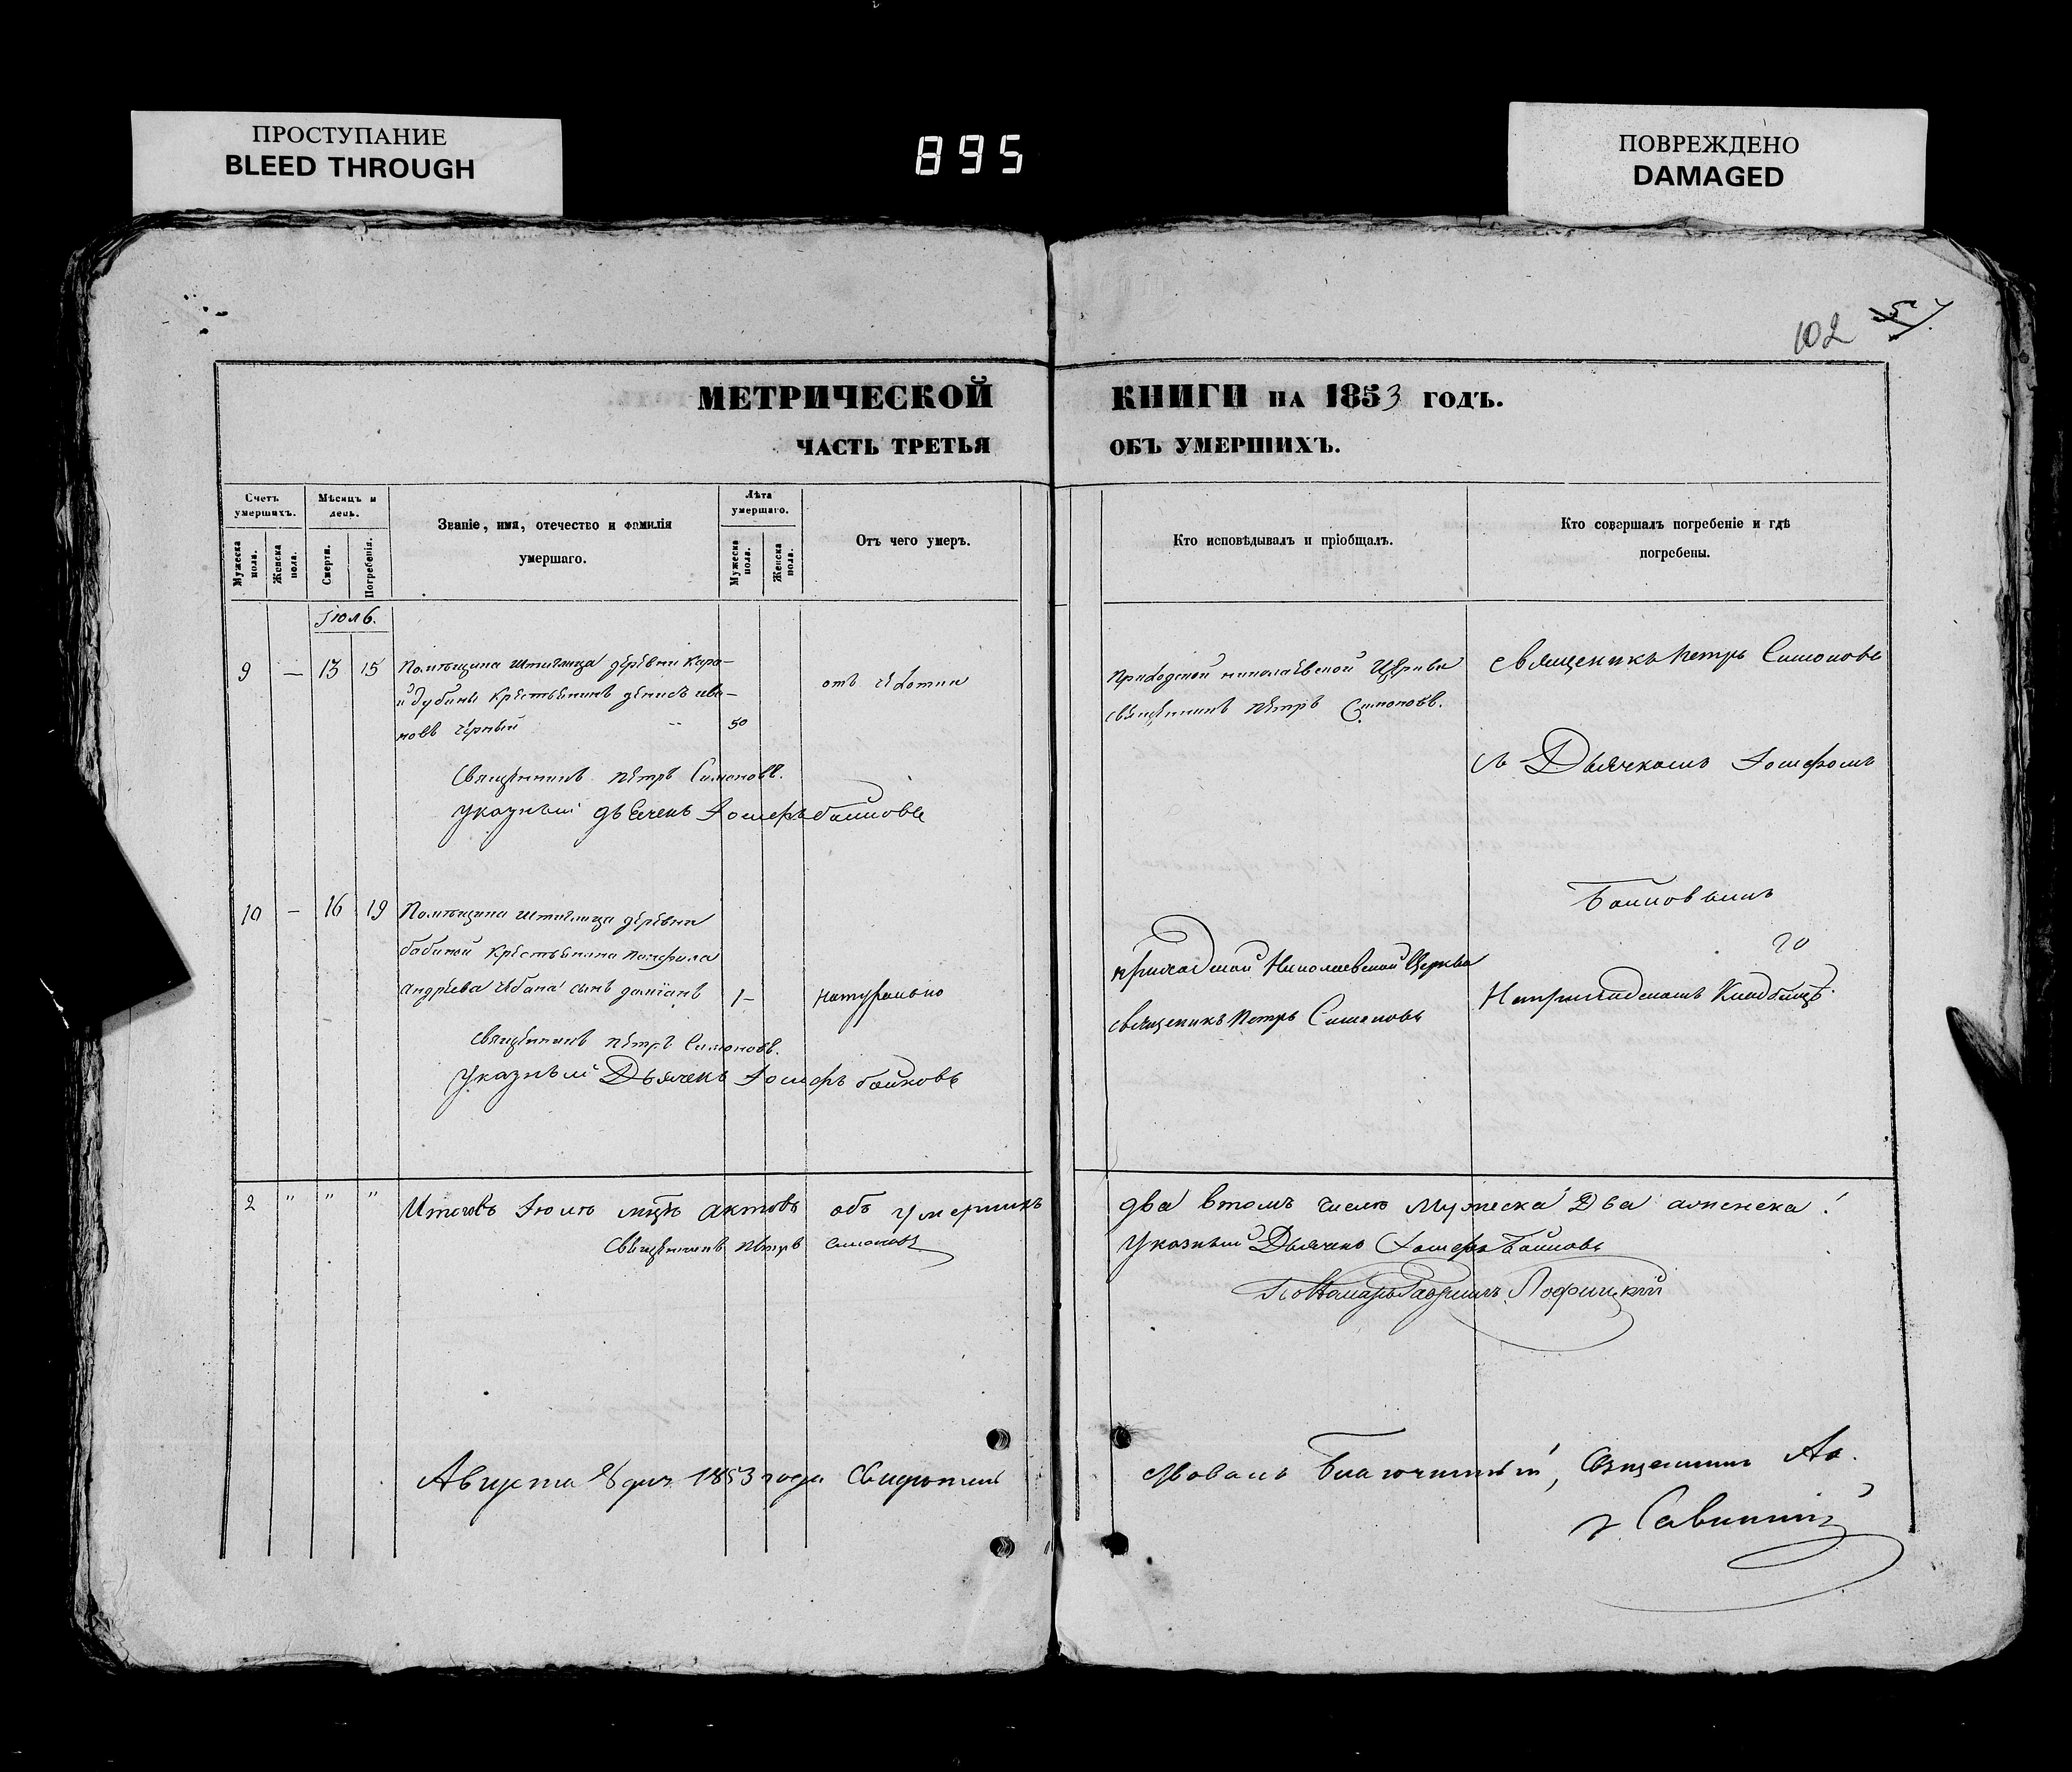 ПРОСТУПАНИЕ
BLEED THROUGH
895
ПОВРЕЖДЕНО
DAMAGED
102
МЕТРИЧЕСКОЙ КНИГИ НА 1853 ГОДЪ.
ЧАСТЬ ТРЕТЬЯ ОБЪ УМЕРШИХЪ.
Счетъ умершихъ.
Мужеска пола.
Женска пола.
Мѣсяцъ и день.
Смерти.
Погребенія.
Званіе, имя, отечество и фамилія
умершаго.
Лѣта умершаго.
Мужеска пола.
Женска пола.
Отъ чего умеръ.
Кто исповѣдывалъ и пріобщалъ.
Кто совершалъ погребеніе и гдѣ
погребены.
Іюль.
9 — 13 15 Помѣщика Штиглица деревни Каро-
й дубины крестьянинъ Денисъ Ива-
новъ Чорный 50
отъ чахотки
Священникъ Петръ Симоновъ.
Указный дьячекъ Іосифъ Байковъ
приходской николаевской Церкви
священникъ Петръ Симоновъ.
священикъ Петръ Симоновъ
съ Дьячкомъ Іосифомъ
Байковымъ
10 — 16 19 Помѣщика Штиглица деревни
бабиной крестьянина Панфила
Андреева чабана сынъ Даміанъ 1-
натурально
священникъ Петръ Симоновъ.
Указный Дьячекъ Іосифъ Байковъ
приходской Николаевской Церкви
священикъ Петръ Симоновъ
На приходскомъ Кладбищѣ.
2 " " " Итого въ Іюлѣ мцѣ актовъ объ умершихъ два втомъ числѣ Мужеска Два аженска !
Священникъ Петръ Симоновъ Указный Дьячекъ Іосифъ Байковъ
Пономарь Гавріилъ Лофицкій
Августа дня 1853 года Свидѣтель ствовалъ Благочинный, Священникъ
Савицкій